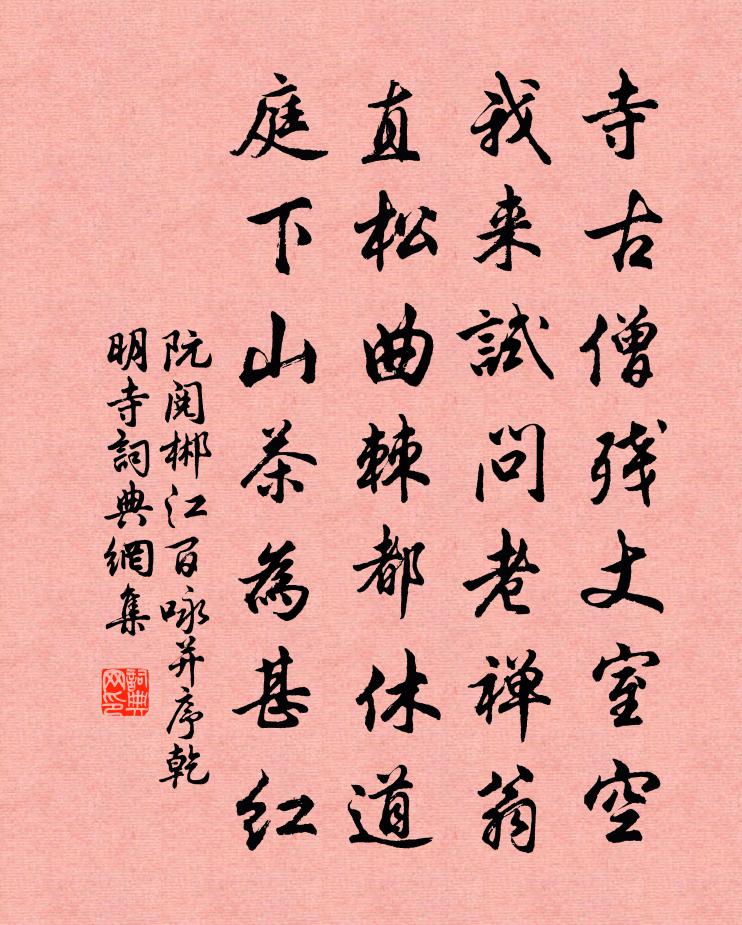 寺古僧残丈室空
我来試問老禅翁
直松曲棘都休道
庭下山茶為甚红
阮閱郴江百咏并序乾
明寺詞典網集
詞典
网印